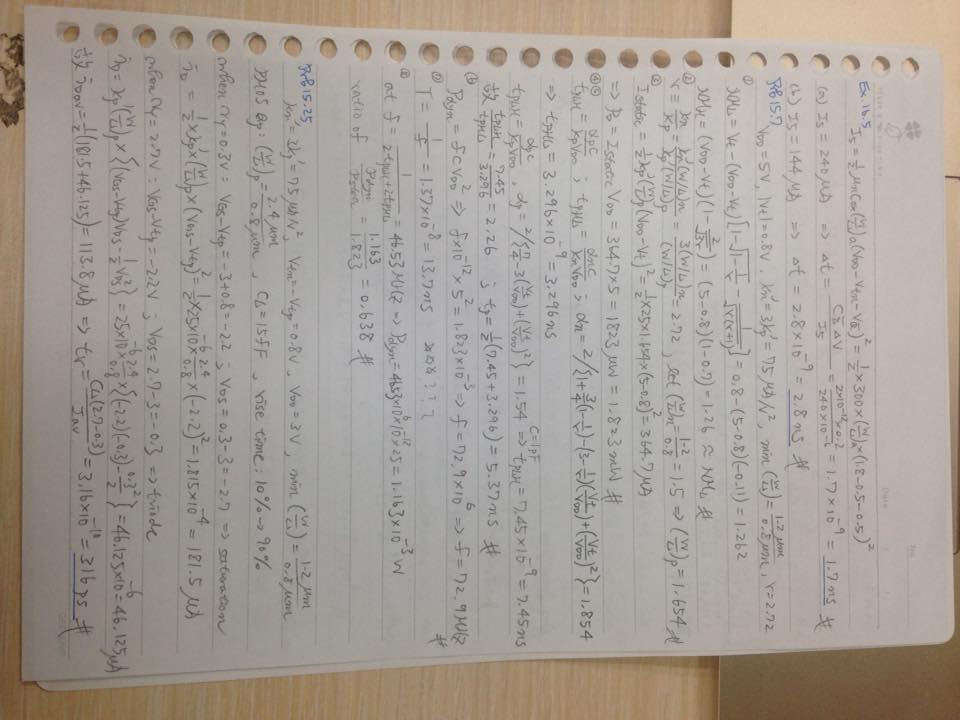 Date
No.
Ex 16.5
I5 = ½ μn Cox (W/L)a (VDD - Vtn - VQ̄)² = ½ × 300 × (W/L)a × (1.8 - 0.5 - 0.5)²
(a) I5 = 240 μA ⇒ Δt = CB ΔV / I5 = 2×10⁻¹² × 0.2 / 240×10⁻⁶ = 1.7×10⁻⁹ = 1.7 ns #
(b) I5 = 144 μA ⇒ Δt = 2.8×10⁻⁹ = 2.8 ns #
15.7
VDD = 5V, |Vt| = 0.8V, kn' = 3kp' = 75 μA/V², min (W/L) = 1.2 μm / 0.8 μm, r = 2.72
① NML = Vt - (VDD - Vt)[1 - √(1 - 1/r) - 1/√(r(r+1))] = 0.8 - (5-0.8)(-0.11) = 1.262
NMH = (VDD - Vt)(1 - 2/√(3r)) = (5-0.8)(1-0.7) = 1.26 ≈ NML #
② r = kn/kp = kn'(W/L)n / kp'(W/L)p = 3(W/L)n / (W/L)p = 2.72, set (W/L)n = 1.2/0.8 = 1.5 ⇒ (W/L)p = 1.654 #
③ Istatic = ½ kp' (W/L)p (VDD - Vt)² = ½ × 25 × 1.654 × (5-0.8)² = 364.7 μA
⇒ PD = Istatic VDD = 364.7 × 5 = 1823 μW = 1.823 mW #
④⑤ tPLH = αp C / kp VDD ; tPHL = αn C / kn VDD ; αn = 2/{1 + ¾(1 - 1/r) - (3 - 1/r)(Vt/VDD) + (Vt/VDD)²} = 1.854
⇒ tPHL = 3.296×10⁻⁹ = 3.296 ns
tPLH = αp C / kp VDD, αp = 2/{7/4 - 3(Vt/VDD) + (Vt/VDD)²} = 1.54 ⇒ C=1pF tPLH = 7.45×10⁻⁹ = 7.45 ns
故 tPLH/tPHL = 7.45/3.296 = 2.26 ; tp = ½(7.45 + 3.296) = 5.37 ns #
⑥ Pdyn = f C VDD² ⇒ f × 10⁻¹² × 5² = 1.823×10⁻³ ⇒ f = 72.9×10⁶ ⇒ f = 72.9 MHz #
⑦ T = 1/f = 1.37×10⁻⁸ = 13.7 ns
⑧ at f = 1 / (2tPLH + 2tPHL) = 46.53 MHz ⇒ Pdyn = 46.53×10⁶ × 10⁻¹² × 25 = 1.163×10⁻³ W
ratio of Pdyn / Pstatic = 1.163 / 1.823 = 0.638 #
15.25
kn' = 3kp' = 75 μA/V², Vtn = -Vtp = 0.8V, VDD = 3V, min (W/L) = 1.2 μm / 0.8 μm
PMOS Qp: (W/L)p = 2.4 μm / 0.8 μm, CL = 15 fF, rise time: 10% → 90%
when Vy = 0.3V: VGS - Vtp = -3 + 0.8 = -2.2 ; VDS = 0.3 - 3 = -2.7 ⇒ saturation
iD = ½ × kp' × (W/L)p × (VGS - Vtp)² = ½ × 25×10⁻⁶ × 2.4/0.8 × (-2.2)² = 1.815×10⁻⁴ = 181.5 μA
when Vy = 2.7V: VGS - Vtp = -2.2V ; VDS = 2.7 - 3 = -0.3 ⇒ triode
iD = kp' (W/L)p × {(VGS - Vtp)VDS - ½VDS²} = 25×10⁻⁶ × 2.4/0.8 × {(-2.2)(-0.3) - 0.3²/2} = 46.125×10⁻⁶ = 46.125 μA
故 iD,av = ½(181.5 + 46.125) = 113.8 μA ⇒ tr = CL(2.7 - 0.3) / Iav = 3.16×10⁻¹⁰ = 316 ps #